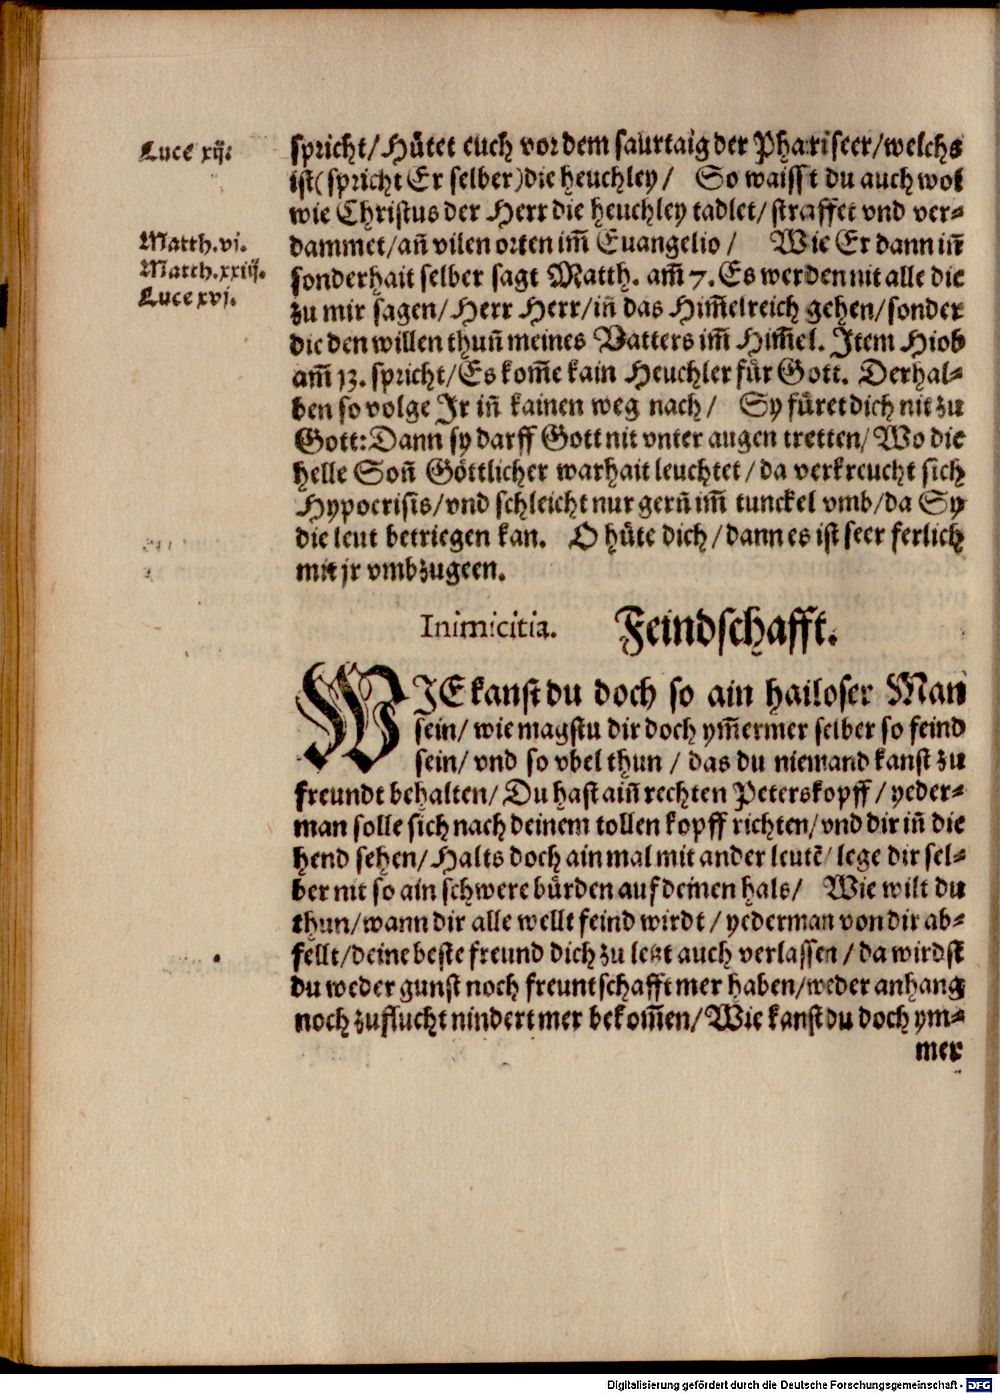 Luce xij.
spricht/ Hütet euch vor dem saurtaig der Phariseer/ welchs
ist (spricht Er selber) die heuchley/ So waisst du auch wol
wie Christus der Herr die heuchley tadlet/ straffet vnd ver-
Matth. vj.
dammet/ añ vilen orten im̃ Euangelio/ Wie Er dann iñ
Matth. xxiij.
sonderhait selber sagt Matth. am̃ 7. Es werden nit alle die
Luce xvj.
zu mir sagen/ Herr Herr/ iñ das Him̃elreich gehen/ sonder
die den willen thuñ meines Vatters im̃ Him̃el. Item Hiob
am̃ 13. spricht/ Es kom̃e kain Heuchler für Gott. Derhal-
ben so volge Ir iñ kainen weg nach/ Sy füret dich nit zu
Gott: Dann sy darff Gott nit vnter augen tretten/ Wo die
helle Soñ Göttlicher warhait leuchtet/ da verkreucht sich
Hypocrisis/ vnd schleicht nur gerñ im̃ tunckel vmb/ da Sy
die leut betriegen kan. O hüte dich/ dann es ist seer ferlich
mit jr vmbzugeen.
Inimicitia. Feindschafft.
WIE kanst du doch so ain hailoser Man
sein/ wie magstu dir doch ym̃ermer selber so feind
sein/ vnd so vbel thun/ das du niemand kanst zu
freundt behalten/ Du hast aiñ rechten Peterskopff/ yeder-
man solle sich nach deinem tollen kopff richten/ vnd dir iñ die
hend sehen/ Halts doch ain mal mit ander leutẽ/ lege dir sel-
ber nit so ain schwere bürden auf deinen hals/ Wie wilt du
thun/ wann dir alle wellt feind wirdt/ yederman von dir ab-
fellt/ deine beste freund dich zu letzt auch verlassen/ da wirdst
du weder gunst noch freuntschafft mer haben/ weder anhang
noch zuflucht nindert mer bekom̃en/ Wie kanst du doch ym-
mer
Digitalisierung gefördert durch die Deutsche Forschungsgemeinschaft - DFG